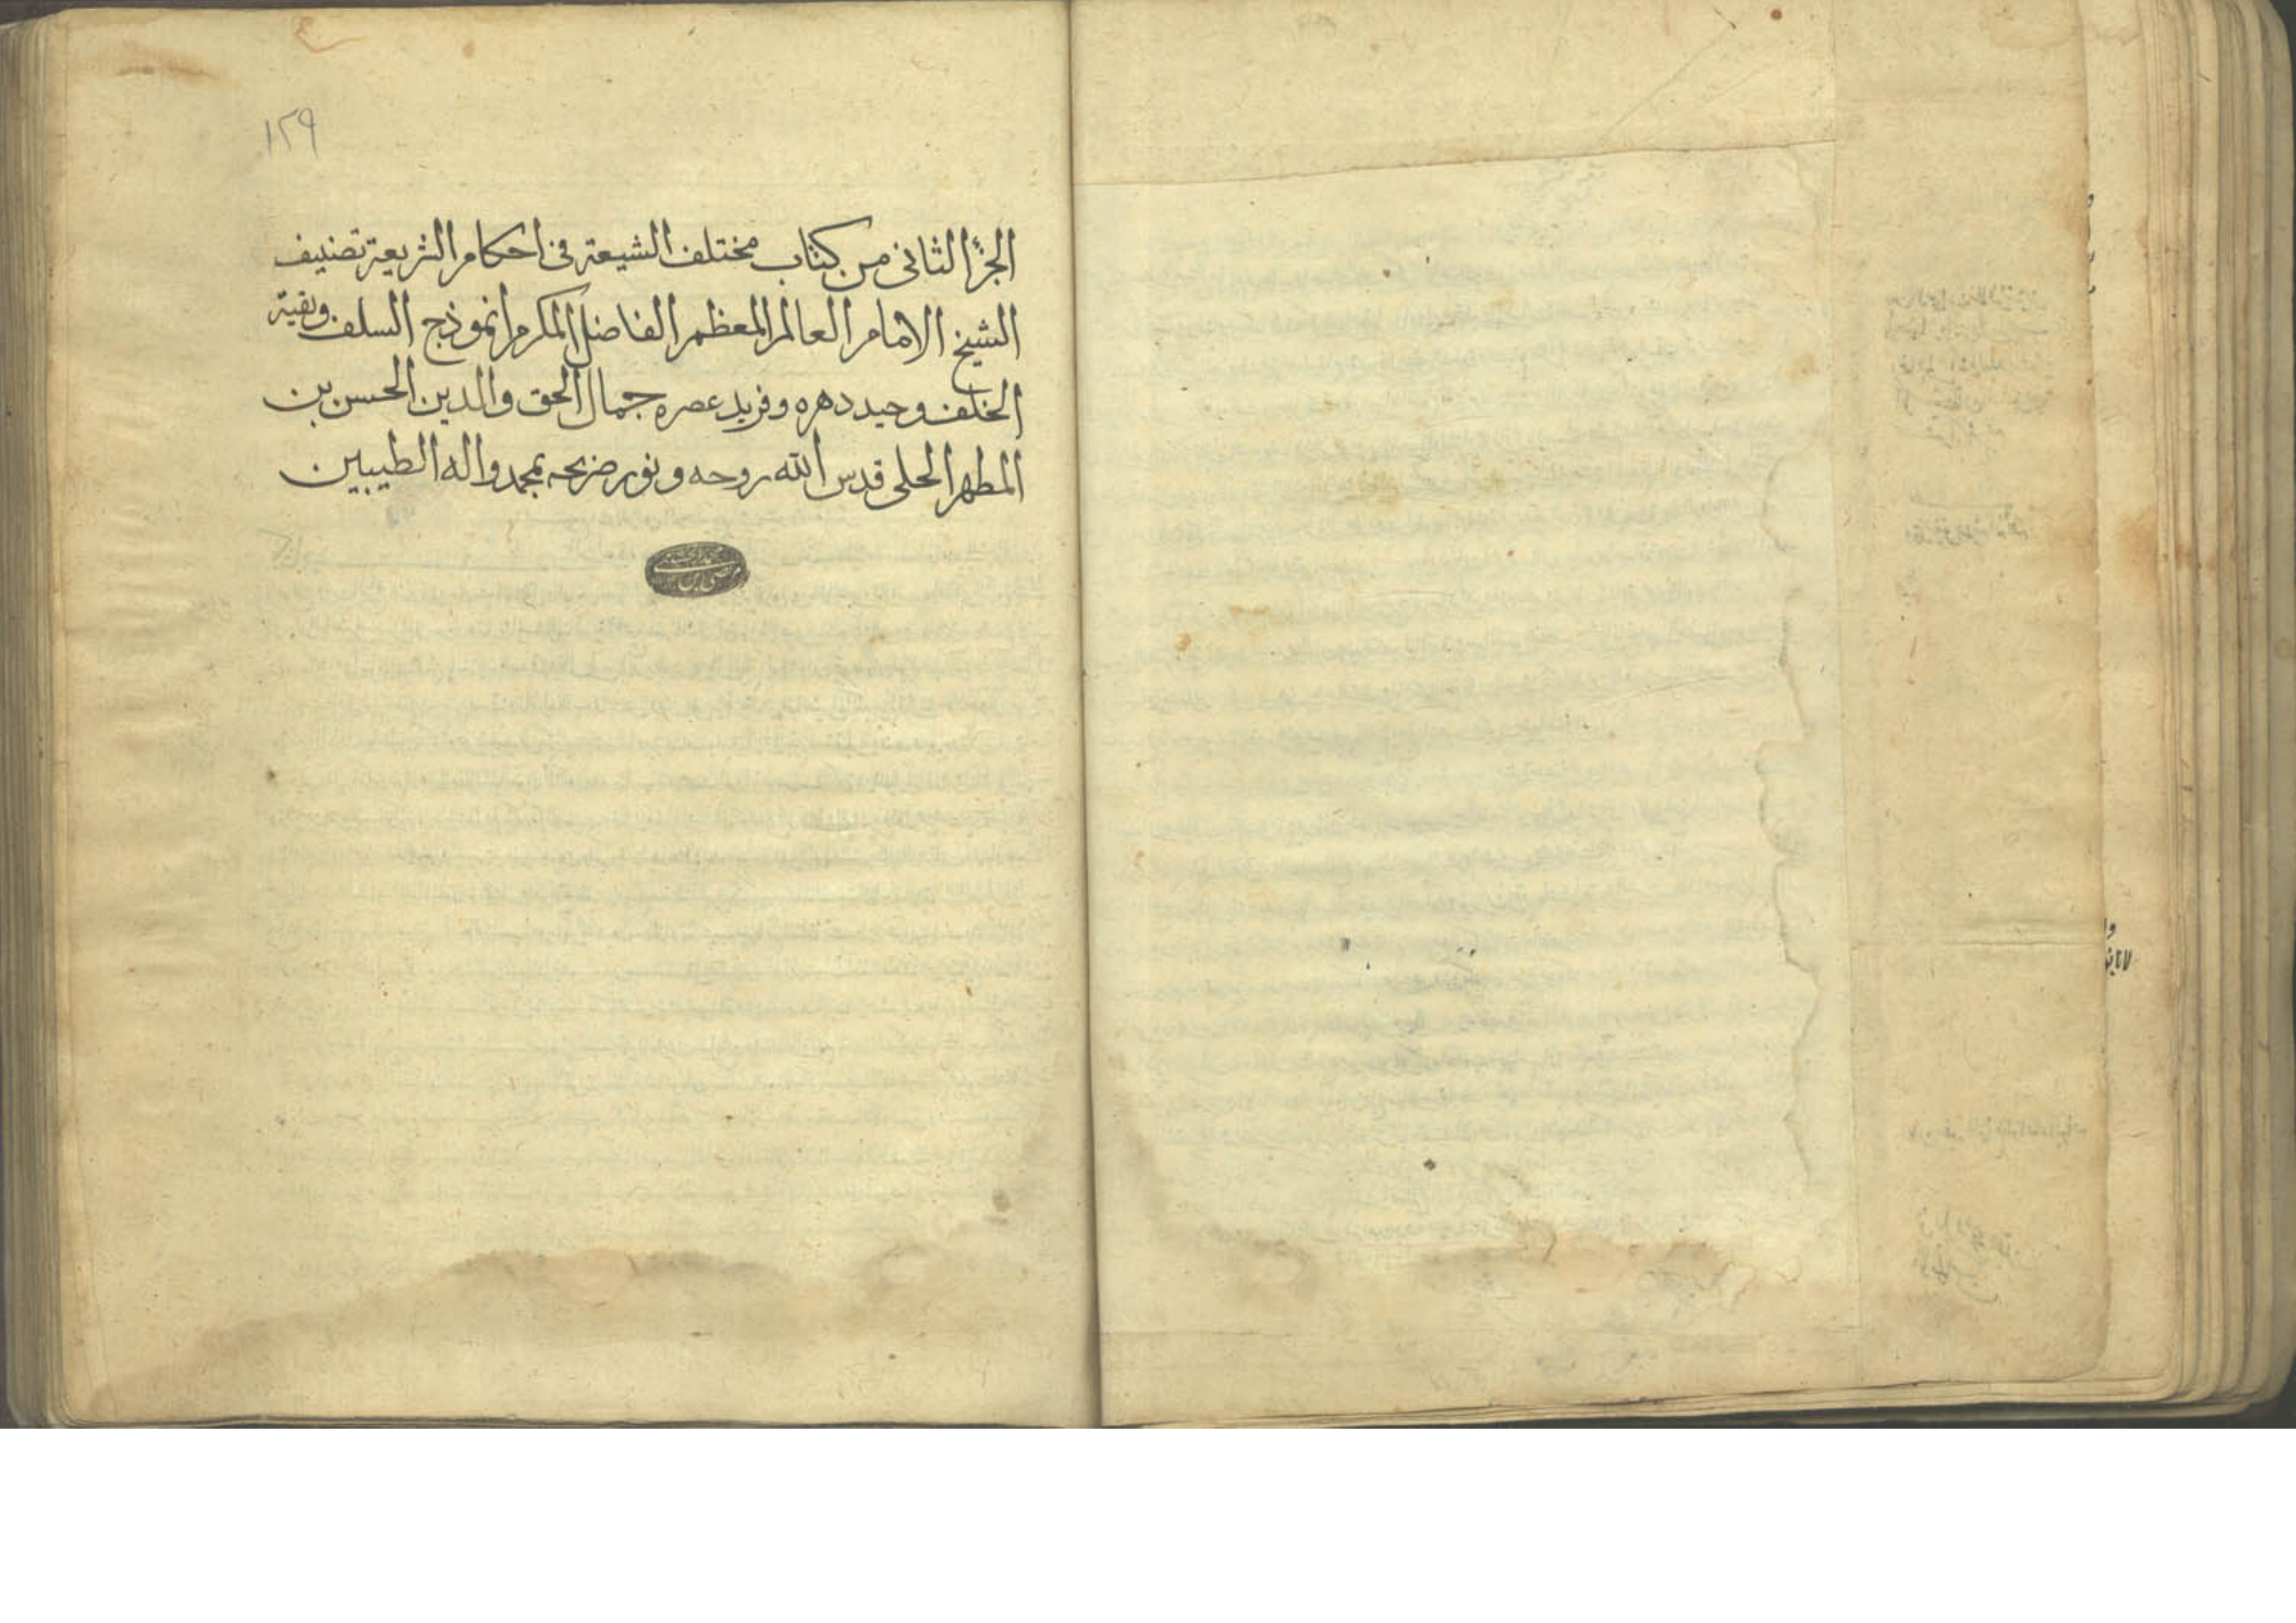 ١٢٩
الجزء الثانى من كتاب مختلف الشيعة فى احكام الشريعة تصنيف
الشيخ الامام العالم المعظم الفاضل المكرم انموذج السلف وبقية
الخلف وحيد دهره وفريد عصره جمال الحق والدين الحسن بن
المطهر الحلى قدس الله روحه ونور ضريحه بمحمد واله الطيبين